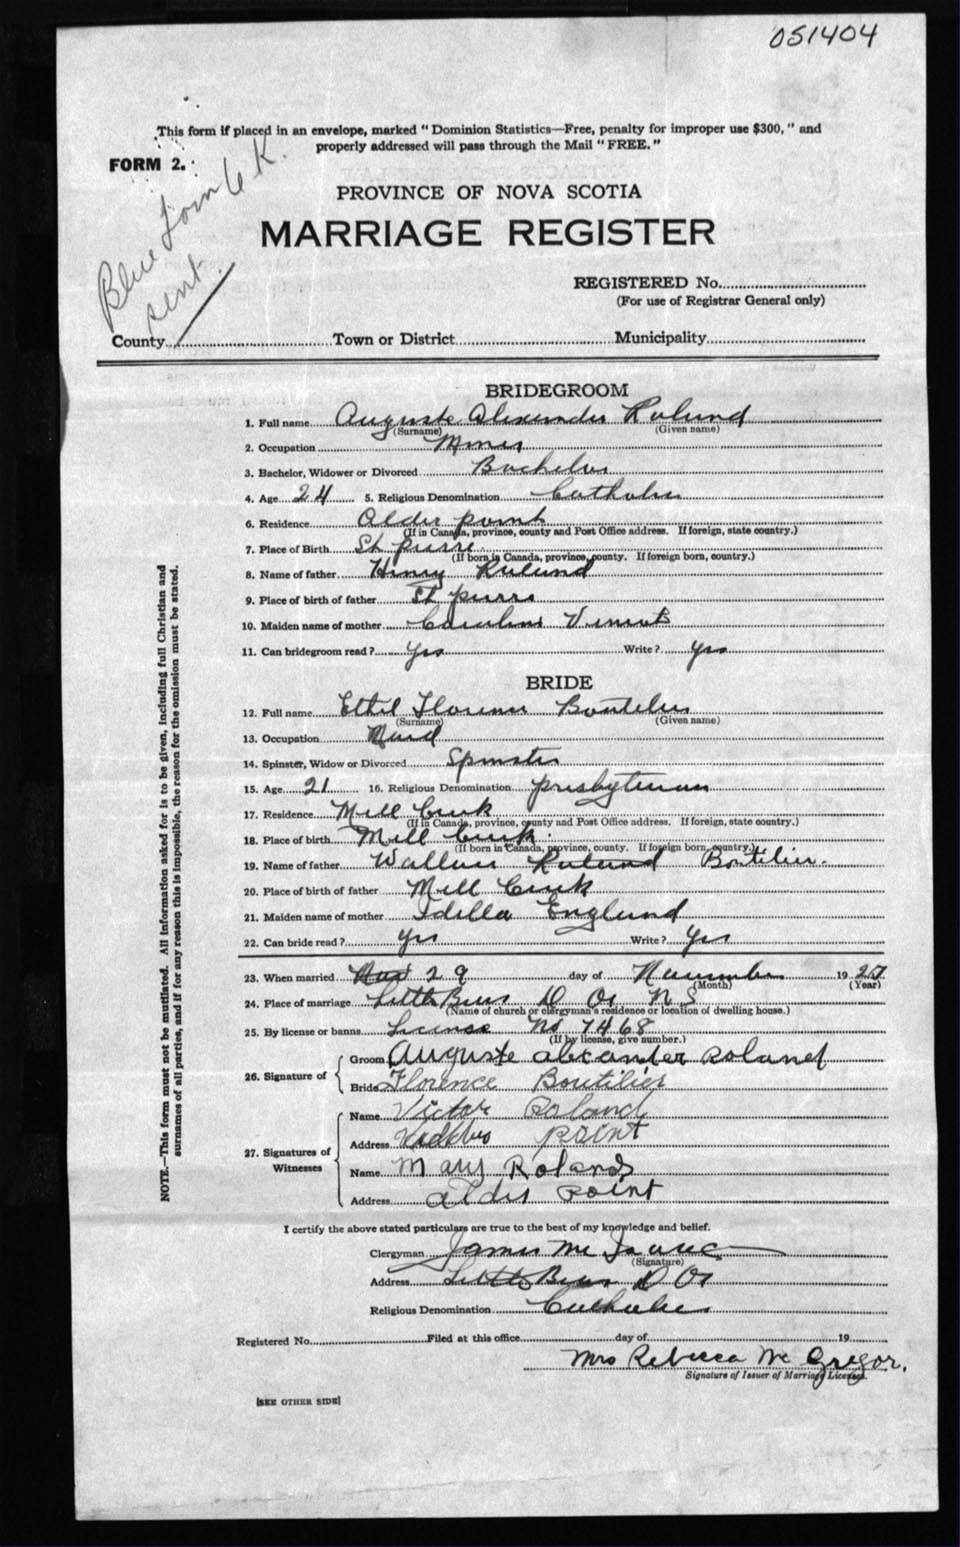 051404
This form if placed in an envelope, marked "Dominion Statistics—Free, penalty for improper use $300," and
properly addressed will pass through the Mail "FREE."
FORM 2.
Blue form 6 K.
sent.
PROVINCE OF NOVA SCOTIA
MARRIAGE REGISTER
REGISTERED No.
(For use of Registrar General only)
County Town or District Municipality
BRIDEGROOM
1. Full name Auguste Alexander Roland
(Surname) (Given name)
2. Occupation Miner
3. Bachelor, Widower or Divorced Bachelor
4. Age 24 5. Religious Denomination Catholic
6. Residence Alder point
(If in Canada, province, county and Post Office address. If foreign, state country.)
7. Place of Birth St pierre
(If born in Canada, province, county. If foreign born, country.)
8. Name of father Henry Roland
9. Place of birth of father St pierre
10. Maiden name of mother Caroline
11. Can bridegroom read? yes Write? yes
BRIDE
12. Full name Ethel Florence Boutilier
(Surname) (Given name)
13. Occupation Maid
14. Spinster, Widow or Divorced Spinster
15. Age 21 16. Religious Denomination presbyterian
17. Residence Mill Creek
(If in Canada, province, county and Post Office address. If foreign, state country.)
18. Place of birth Mill Creek.
(If born in Canada, province, county. If foreign born, country.)
19. Name of father Wallace Roland Boutilier.
20. Place of birth of father Mill Creek
21. Maiden name of mother Idella England
22. Can bride read? yes Write? yes
23. When married 29 day of November 1927
(Month) (Year)
24. Place of marriage Little Bras D Or N S
(Name of church or clergyman's residence or location of dwelling house.)
25. By license or banns License No 7468
(If by license, give number.)
26. Signature of
Groom Auguste alexander Roland
Bride Florence Boutilier
27. Signatures of Witnesses
Name Victor Roland
Address point
Name Mary Roland
Address alder Point
I certify the above stated particulars are true to the best of my knowledge and belief.
Clergyman James Mc Isaac
(Signature)
Address Little Bras D Or
Religious Denomination Catholic
Registered No. Filed at this office day of 19
Mrs Rebecca Mc Gregor.
Signature of Issuer of Marriage License.
[SEE OTHER SIDE]
NOTE.—This form must not be mutilated. All information asked for is to be given, including full Christian and
surnames of all parties, and if for any reason this is impossible, the reason for the omission must be stated.